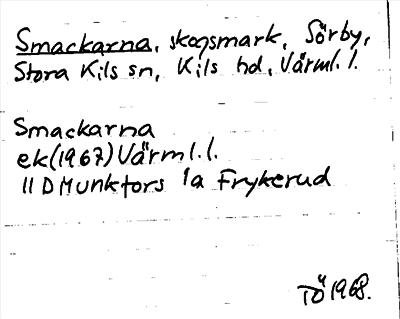 Smackarna, skogsmark, Sörby,
Stora Kils sn, Kils hd, Värml. l.
Smackarna
ek (1967) Värml. l.
11 D Munkfors 1a Frykerud
TÖ 1968.